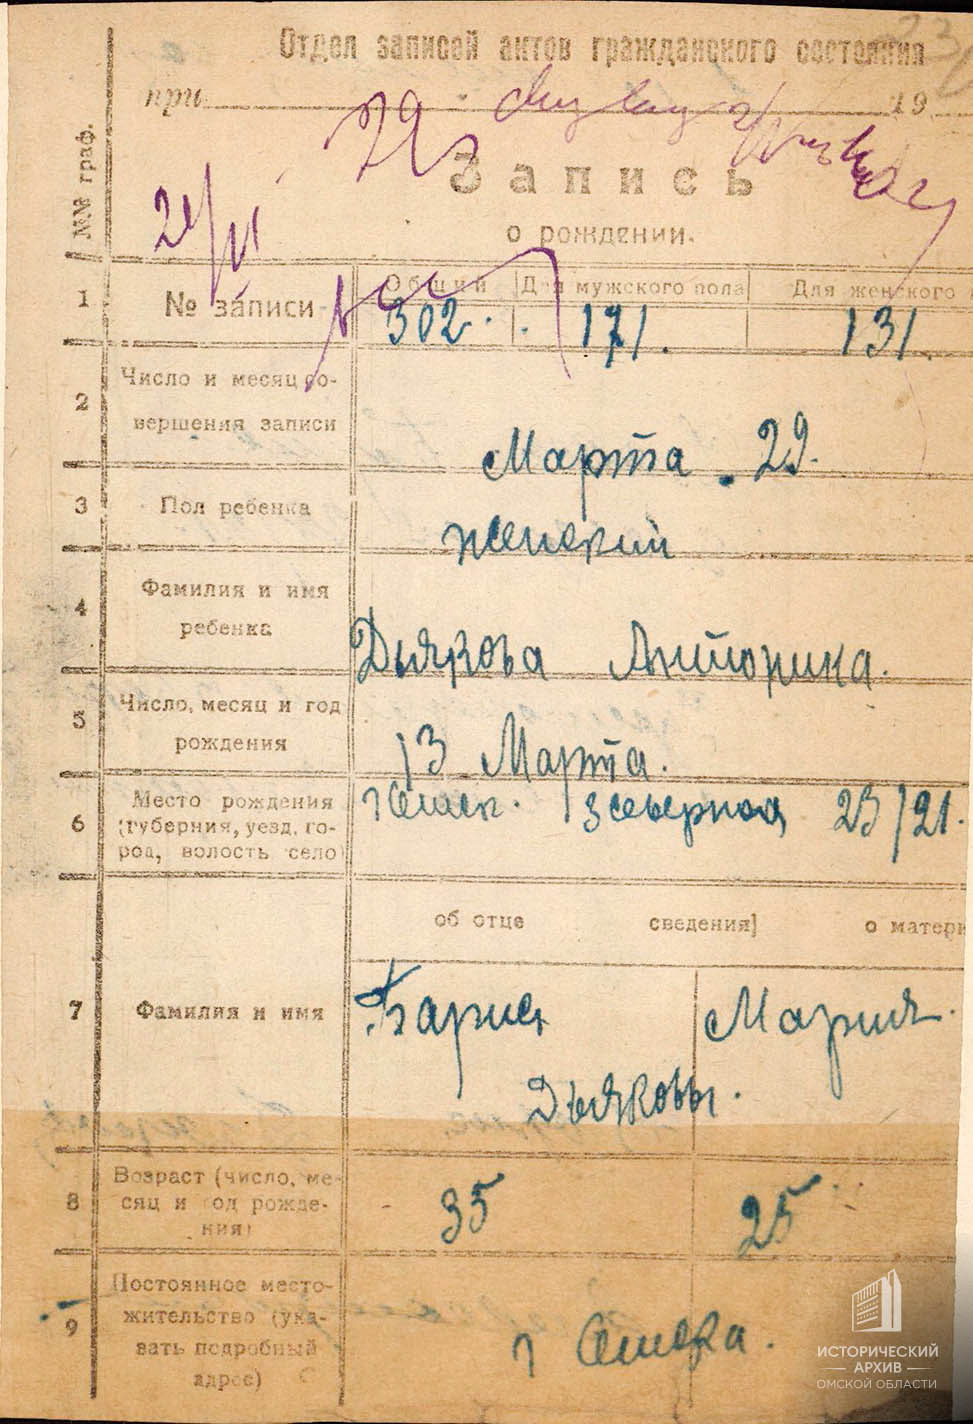 Отдел записей актов гражданского состояния
при 19
Запись
о рождении.
№№ граф.
1
№ записи
Общий
Для мужского пола
Для женского
302.
171.
131.
2
Число и месяц со-
вершения записи
Марта 29.
3
Пол ребенка
женский
4
Фамилия и имя
ребенка
Дьякова Антонина.
5
Число, месяц и год
рождения
13 Марта.
6
Место рождения
(губерния, уезд, го-
род, волость село)
г Омск. 3 северная 23/21.
об отце
сведения]
о матери
7
Фамилия и имя
Барис
Мария.
Дьяковы.
8
Возраст (число, ме-
сяц и год рожде-
ния)
35
25
9
Постоянное место-
жительство (ука-
зать подробный
адрес)
г Омска.
ИСТОРИЧЕСКИЙ
АРХИВ
ОМСКОЙ ОБЛАСТИ